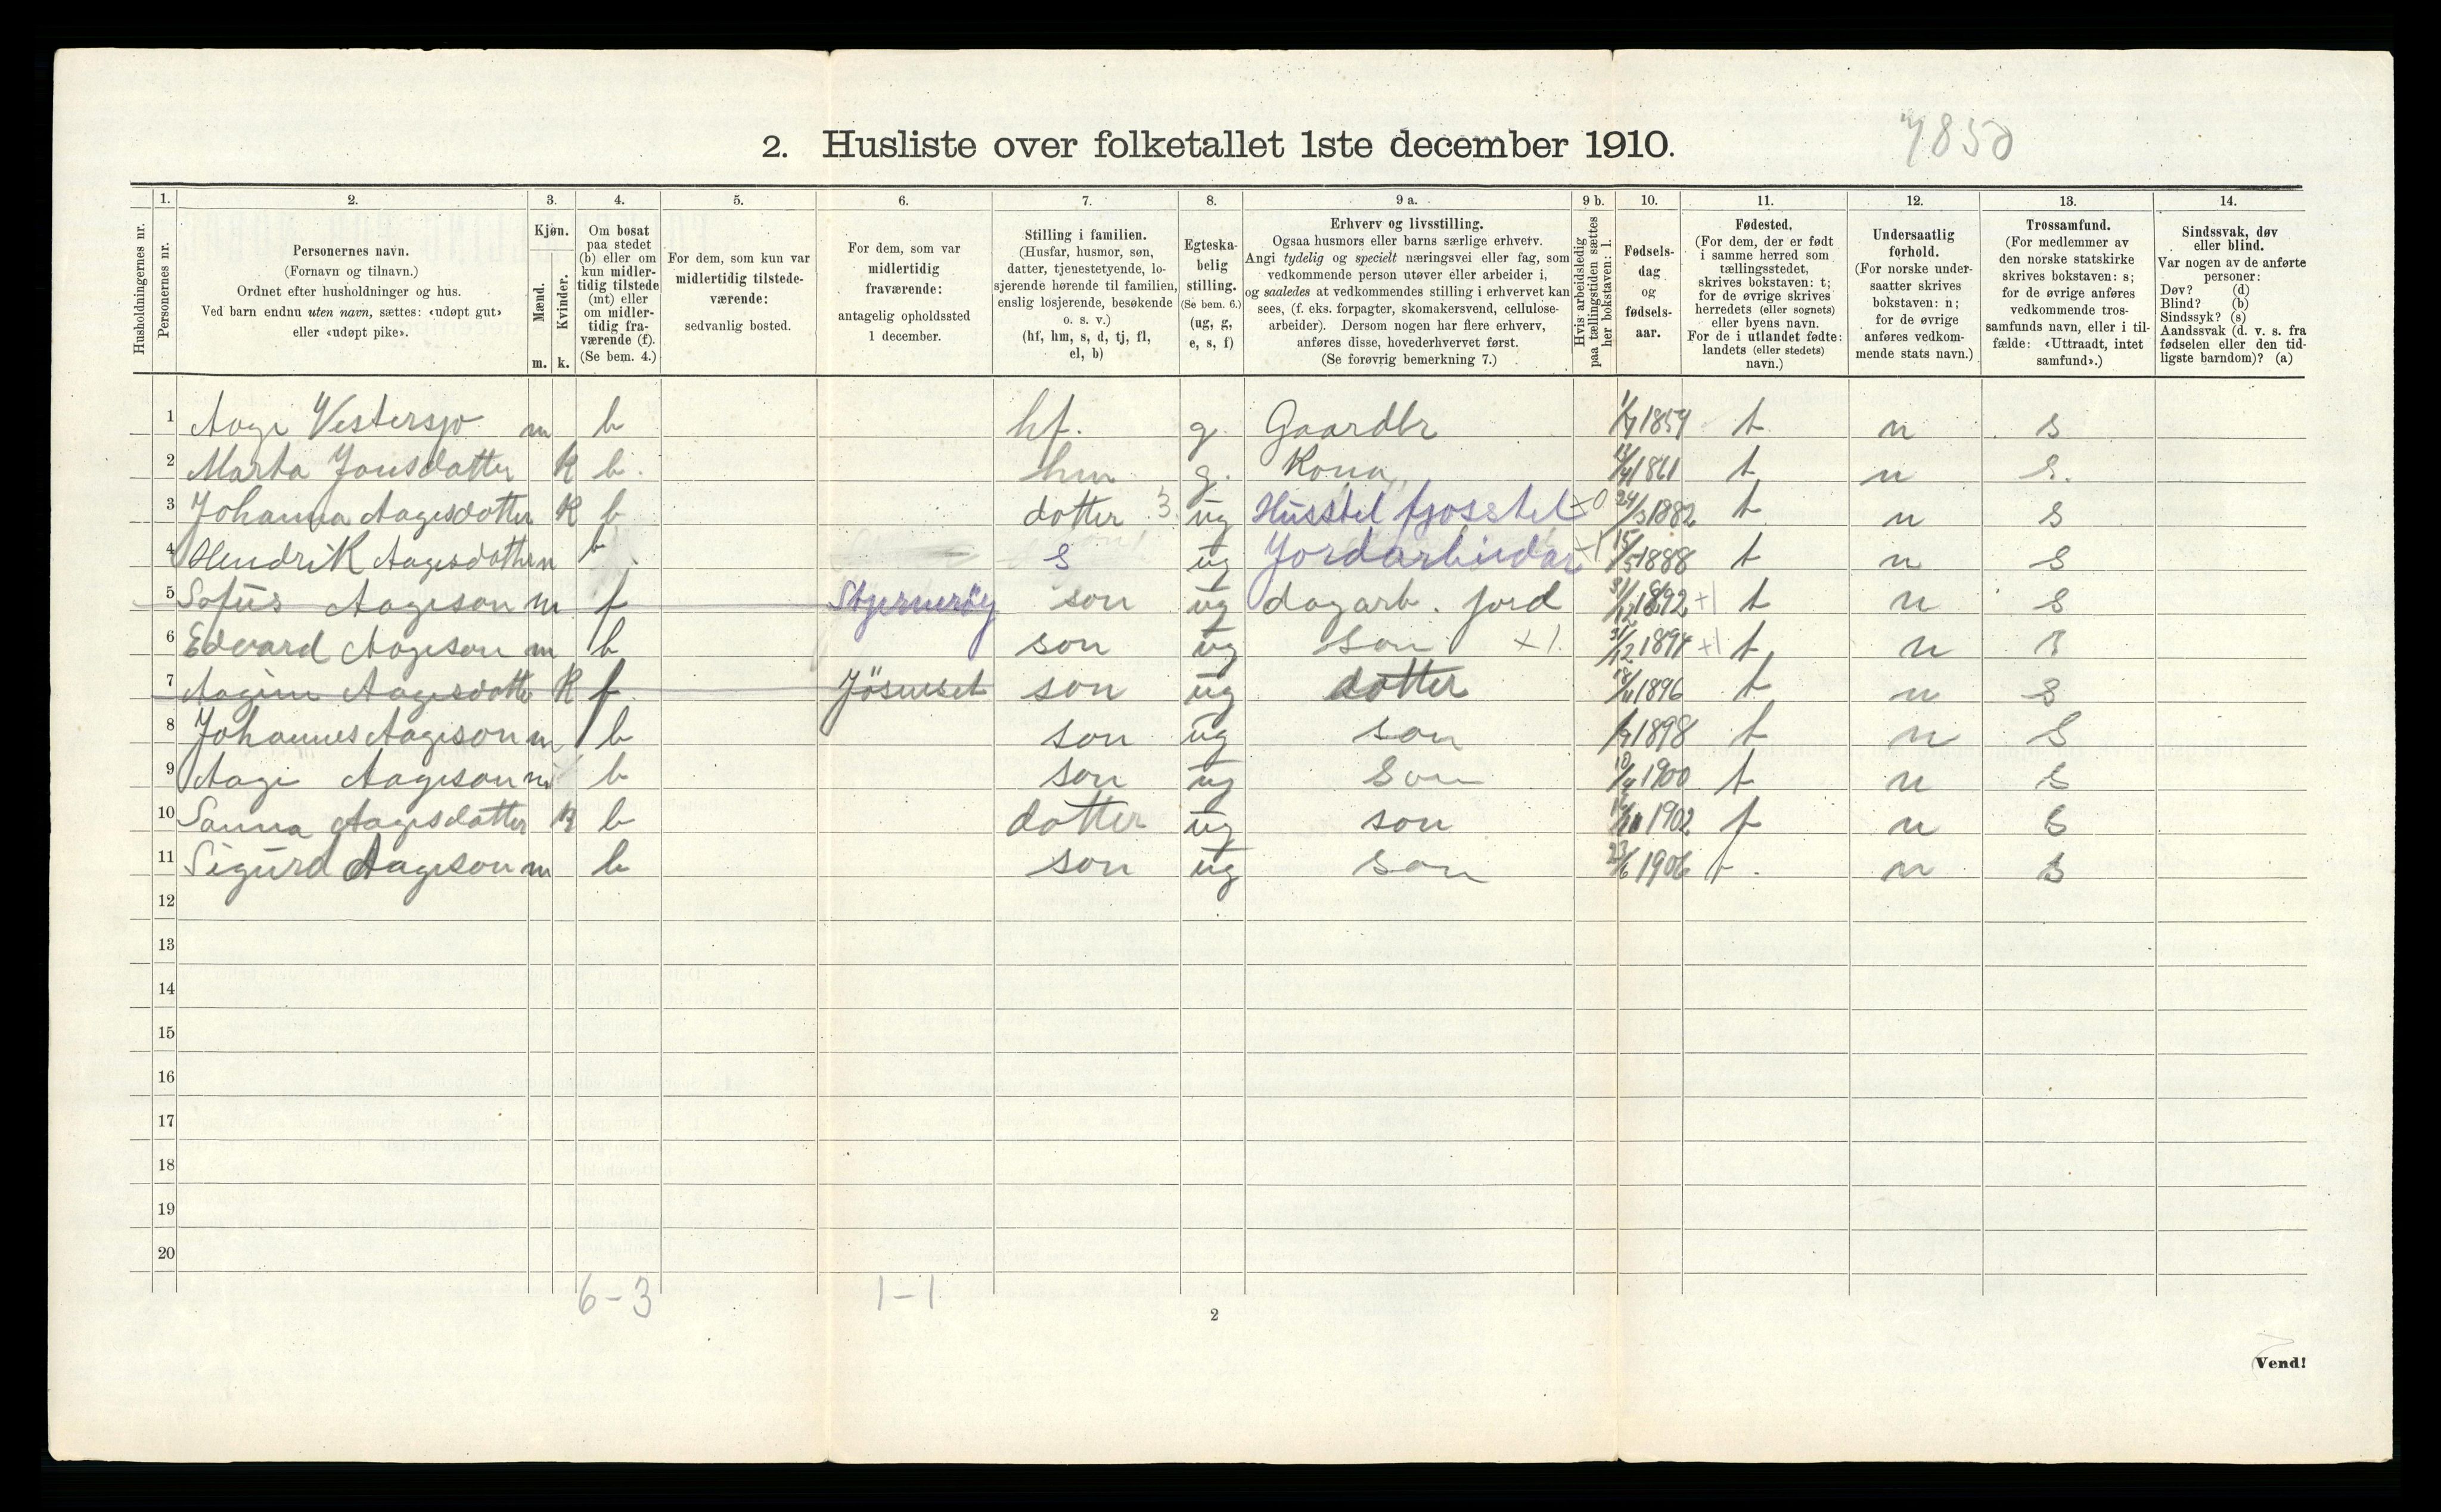 2. Husliste over folketallet 1ste december 1910.
7850
1. 2. 3. 4. 5. 6. 7. 8. 9 a. 9 b. 10. 11. 12. 13. 14.
Husholdningernes nr.
Personernes nr.
Personernes navn.
(Fornavn og tilnavn.)
Ordnet efter husholdninger og hus.
Ved barn endnu uten navn, sættes: «udøpt gut»
eller «udøpt pike».
Kjøn.
Mænd.
m.
Kvinder.
k.
Om bosat
paa stedet
(b) eller om
kun midler-
tidig tilstede
(mt) eller
om midler-
tidig fra-
værende (f).
(Se bem. 4.)
For dem, som kun var
midlertidig tilstede-
værende:
sedvanlig bosted.
For dem, som var
midlertidig
fraværende:
antagelig opholdssted
1 december.
Stilling i familien.
(Husfar, husmor, søn,
datter, tjenestetyende, lo-
sjerende hørende til familien,
enslig losjerende, besøkende
o. s. v.)
(hf, hm, s, d, tj, fl,
el, b)
Egteska-
belig
stilling.
(Se bem. 6.)
(ug, g,
e, s, f)
Erhverv og livsstilling.
Ogsaa husmors eller barns særlige erhverv.
Angi tydelig og specielt næringsvei eller fag, som
vedkommende person utøver eller arbeider i,
og saaledes at vedkommendes stilling i erhvervet kan
sees, (f. eks. forpagter, skomakersvend, cellulose-
arbeider). Dersom nogen har flere erhverv,
anføres disse, hovederhvervet først.
(Se forøvrig bemerkning 7.)
Hvis arbeidsledig
paa tællingstiden sættes
her bokstaven: l.
Fødsels-
dag
og
fødsels-
aar.
Fødested.
(For dem, der er født
i samme herred som
tællingsstedet,
skrives bokstaven: t;
for de øvrige skrives
herredets (eller sognets)
eller byens navn.
For de i utlandet fødte:
landets (eller stedets)
navn.)
Undersaatlig
forhold.
(For norske under-
saatter skrives
bokstaven: n;
for de øvrige
anføres vedkom-
mende stats navn.)
Trossamfund.
(For medlemmer av
den norske statskirke
skrives bokstaven: s;
for de øvrige anføres
vedkommende tros-
samfunds navn, eller i til-
fælde: «Uttraadt, intet
samfund».)
Sindssvak, døv
eller blind.
Var nogen av de anførte
personer:
Døv? (d)
Blind? (b)
Sindssyk? (s)
Aandssvak (d. v. s. fra
fødselen eller den tid-
ligste barndom)? (a)
1 Aage Vestersjo m b hf. g. Gaardbr 1857 t n s
2 Marta Jonsdatter K b. hm g. Kona 1861 t n s.
3 Johanna Aagesdotter K b dotter 3 ug Husstel fjosstel x0 24/3 1882 t n s
4 Hendrik Aagesdotter m b s ug Jordarbiedar x1 15/5 1888 t n s
5 Sofus Aageson m f Stjernerøy son ug dagarb. jord 31/12 1892 +1 t n s
6 Edvard Aageson m b son ug son x1. 31/12 1894 +1 t n s
7 Aagine Aagesdotte K f Jösneset son ug dotter 18/11 1896 t n s
8 Johannes Aageson m b son ug son 1898 t n s
9 Aage Aageson m b son ug son 10/4 1900 t n s
10 Sanna Aagesdatter K b dotter ug son 1902 t n s
11 Sigurd Aageson m b son ug son 23/6 1906 t. n s
12
13
14
15
16
17
18
19
20
6-3 1-1
2
Vend!